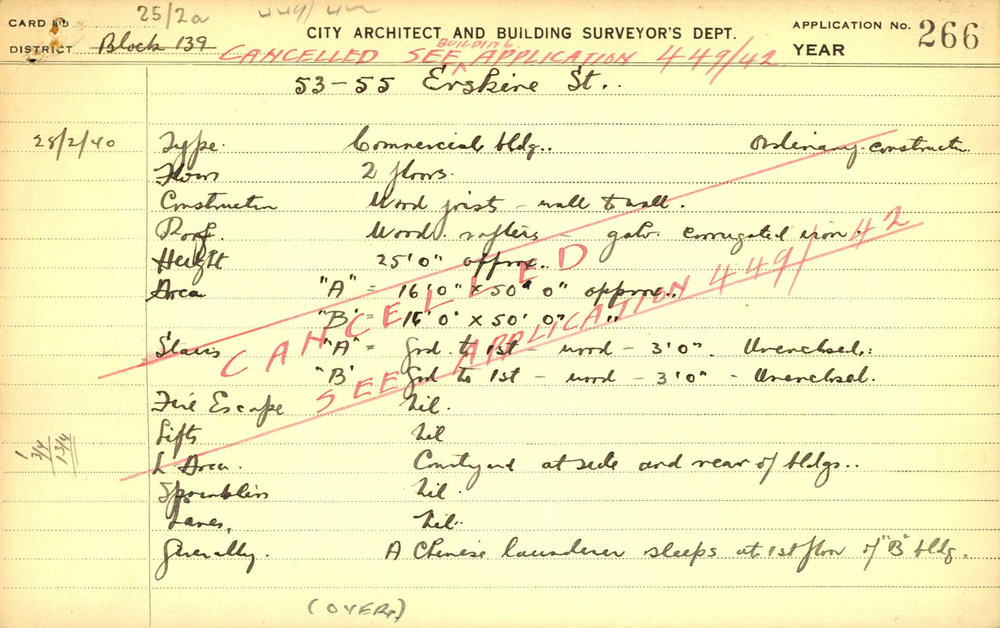 CARD No. 25/2a 449/42
CITY ARCHITECT AND BUILDING SURVEYOR'S DEPT.
APPLICATION No. 266
DISTRICT Block 139
YEAR
CANCELLED SEE BUILDING APPLICATION 449/42
53-55 Erskine St.
28/2/40 Type. Commercial bldg.. Ordinary constructn
Floors 2 floors.
Construction Wood joists - wall to wall.
Roof. Wood rafters - galv. corrugated iron.
Height 25'0" approx..
Area "A" = 16'0" x 50' 0" approx..
"B" = 16'0" x 50' 0" "
Stairs "A" = Grd. to 1st - wood - 3'0". Unenclosed.
"B" Grd to 1st - wood - 3'0" - Unenclosed.
CANCELLED
SEE APPLICATION 449/42
Fire Escape Nil.
Lifts Nil
L Area. Courtyard at side and rear of bldgs..
Sprinklers Nil.
Lanes. Nil.
Generally. A Chinese launderer sleeps at 1st floor of "B" bldg.
(OVER)